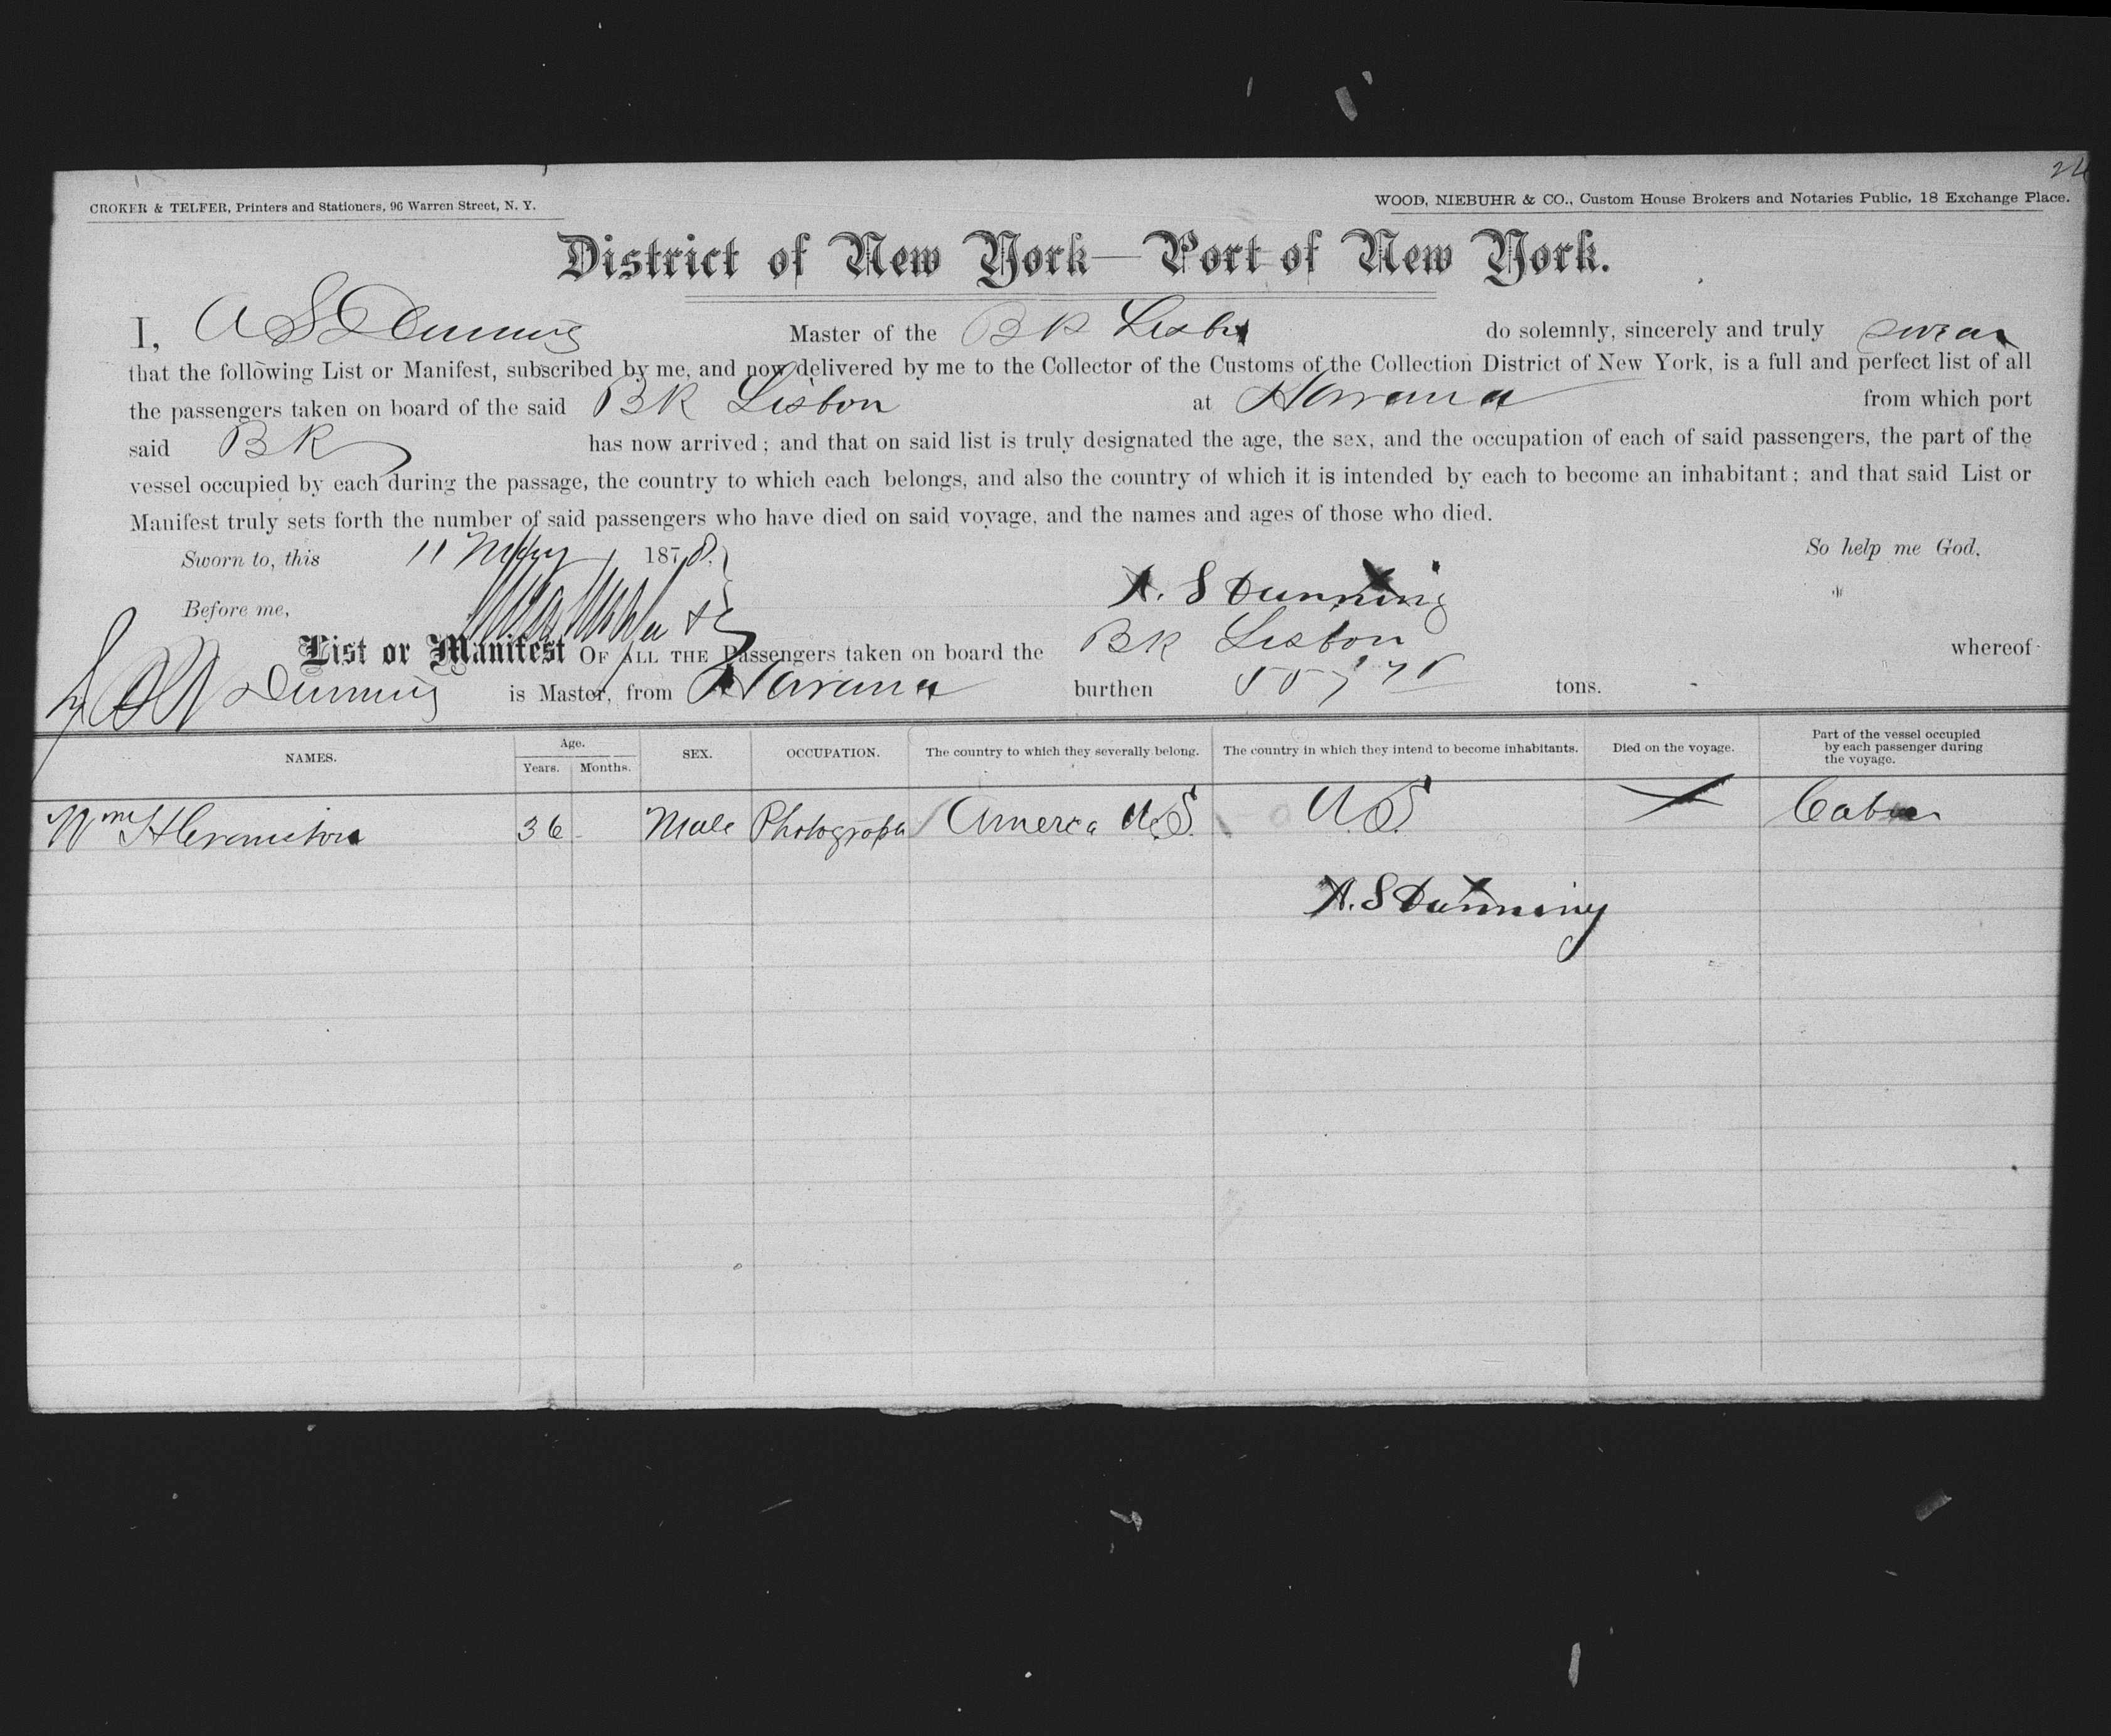 CROKER & TELFER, Printers and Stationers, 96 Warren Street, N. Y.
WOOD, NIEBUHR & CO., Custom House Brokers and Notaries Public, 18 Exchange Place.
District of New York—Port of New York.
I, A S Dunning Master of the Bk Lisbn do solemnly, sincerely and truly swear
that the following List or Manifest, subscribed by me, and now delivered by me to the Collector of the Customs of the Collection District of New York, is a full and perfect list of all
the passengers taken on board of the said Bk Lisbon at Havana from which port
said Bk has now arrived; and that on said list is truly designated the age, the sex, and the occupation of each of said passengers, the part of the
vessel occupied by each during the passage, the country to which each belongs, and also the country of which it is intended by each to become an inhabitant; and that said List or
Manifest truly sets forth the number of said passengers who have died on said voyage, and the names and ages of those who died.
Sworn to, this 11 May 1878. So help me God,
Before me, A. S Dunning
List or Manifest OF ALL THE Passengers taken on board the Bk Lisbon whereof
Dunning is Master, from Havana burthen tons.
NAMES. Age. Years. Months. SEX. OCCUPATION. The country to which they severally belong. The country in which they intend to become inhabitants. Died on the voyage. Part of the vessel occupied by each passenger during the voyage.
Wm H 36 Male Photograph America U.S. U.S. Cabin
A. S Dunning